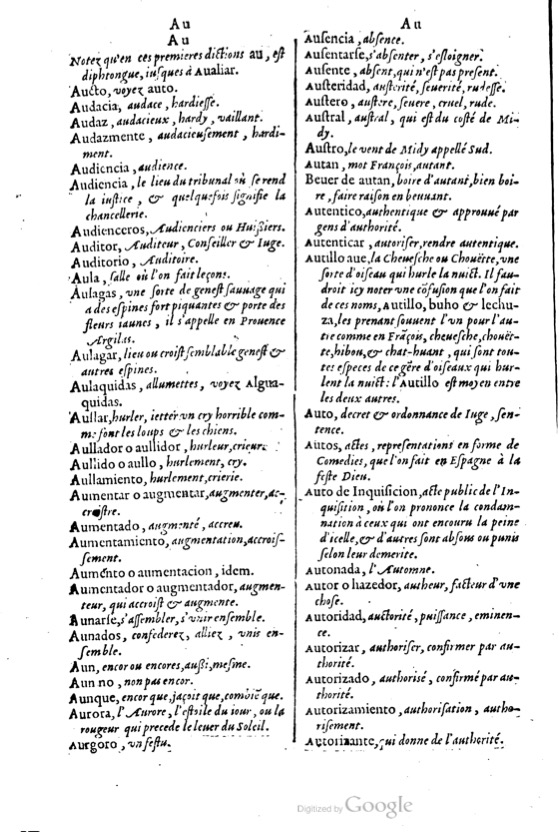 Au
Au
Notez qu'en ces premieres dictiõs au, est
diphtongue, iusques à Aualiar.
Aucto, voyez auto.
Audacia, audace, hardiesse.
Audaz, audacieux, hardy, vaillant.
Audazmente, audacieusement, hardi-
ment.
Audiencia, audience.
Audiencia, le lieu du tribunal où se rend
la iustice, & quelquefois signifie la
chancellerie.
Audienceros, Audienciers ou Huissiers.
Auditor, Auditeur, Conseiller & Iuge.
Auditorio, Auditoire.
Aula, salle où l'on fait leçons.
Aulagas, vne sorte de genest sauuage qui
a des espines fort piquantes & porte des
fleurs iaunes, il s'appelle en Prouence
Argilas.
Aulagar, lieu ou croist semblable genest &
autres espines.
Aulaquidas, allumettes, voyez Algua-
quidas.
Aullar, hurler, ietter vn cry horrible com-
me font les loups & les chiens.
Aullador o aullidor, hurleur, crieur.
Aullido o aullo, hurlement, cry.
Aullamiento, hurlement, crierie.
Aumentar o augmentar, augmenter, ac-
croistre.
Aumentado, augmenté, accreu.
Aumentamiento, augmentation, accrois-
sement.
Aumẽto o aumentacion, idem.
Aumentador o augmentador, augmen-
teur, qui accroist & augmente.
Aunarse, s'assembler, s'vnir ensemble.
Aunados, confederez, alliez, vnis en-
semble.
Aun, encor ou encores, aussi, mesme.
Aun no, non pas encor.
Aunque, encor que, jaçoit que, combiẽ que.
Aurora, l'Aurore, l'estoile du iour, ou la
rougeur qui precede le leuer du Soleil.
Aurgoro, vn festu.
Au
Ausencia, absence.
Ausentarse, s'absenter, s'esloigner.
Ausente, absent, qui n'est pas present.
Austeridad, austerité, seuerité, rudesse.
Austero, austere, seuere, cruel, rude.
Austral, austral, qui est du costé de Mi-
dy.
Austro, le vent de Midy appellé Sud.
Autan, mot François, autant.
Beuer de autan, boire d'autant, bien boi-
re, faire raison en beuuant.
Autentico, authentique & approuué par
gens d'authorité.
Autenticar, autoriser, rendre autentique.
Autillo aue, la Cheuesche ou Chouëtte, vne
sorte d'oiseau qui hurle la nuict. Il fau-
droit icy noter vne cõfusion que l'on fait
de ces noms, Autillo, buho & lechu-
za, les prenant souuent l'vn pour l'au-
tre comme en Frãçois, cheuesche, chouët-
te, hibou, & chat-huant, qui sont tou-
tes especes de ce gẽre d'oiseaux qui hur-
lent la nuict: l'Autillo est moyen entre
les deux autres.
Auto, decret & ordonnance de Iuge, sen-
tence.
Autos, actes, representations en forme de
Comedies, que l'on fait en Espagne à la
feste Dieu.
Auto de Inquisicion, acte public de l'In-
quisition, où l'on prononce la condam-
nation à ceux qui ont encouru la peine
d'icelle, & d'autres sont absous ou punis
selon leur demerite.
Autonada, l'Automne.
Autor o hazedor, autheur, facteur d'vne
chose.
Autoridad, auctorité, puissance, eminen-
ce.
Autorizar, authoriser, confirmer par au-
thorité.
Autorizado, authorisé, confirmé par au-
thorité.
Autorizamiento, authorisation, autho-
risement.
Autorizante, qui donne de l'authorité.
Digitized by Google